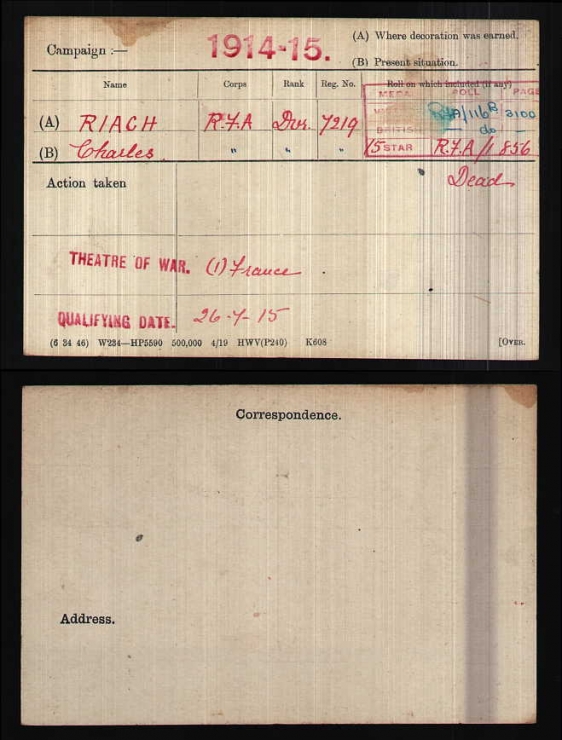 Campaign :— 1914-15. (A) Where decoration was earned.
(B) Present situation.
Name Corps Rank Reg. No. Roll on which included (if any)
MEDAL ROLL PAGE
(A) RIACH R.F.A Dvr. 7219 RFA/116B 3100
(B) Charles " " " BRITISH do —
15 STAR R.F.A/1 856
Action taken Dead
THEATRE OF WAR. (1) France
QUALIFYING DATE. 26-7-15
(6 34 46) W234—HP5590 500,000 4/19 HWV(P240) K608 [OVER.
Correspondence.
Address.